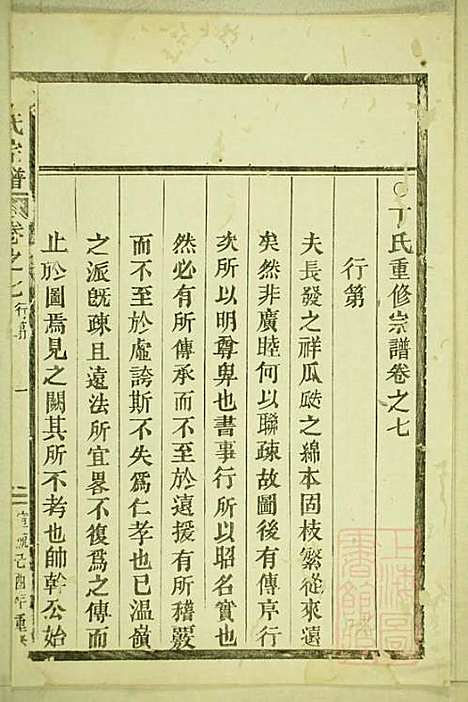 丁氏重修宗譜卷之七
行第
夫長發之祥瓜瓞之綿本固枝繁從來遠
矣然非廣睦何以聯疎故圖後有傳序行
次所以明尊卑也書事行所以昭名實也
然必有所傳承而不至於遠援有所稽覈
而不至於虛誇斯不失爲仁孝也已温嶺
之派旣疎且遠法所宜畧不復爲之傳而
止於圖焉見之闕其所不考也帥幹公始
氏宗譜
卷之七
行第
一
宣統己酉年重